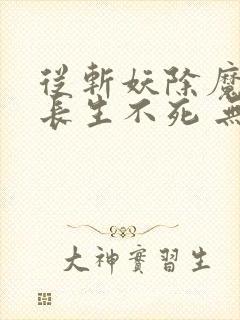 從斬妖除魔
長生不死 無
大神實習生